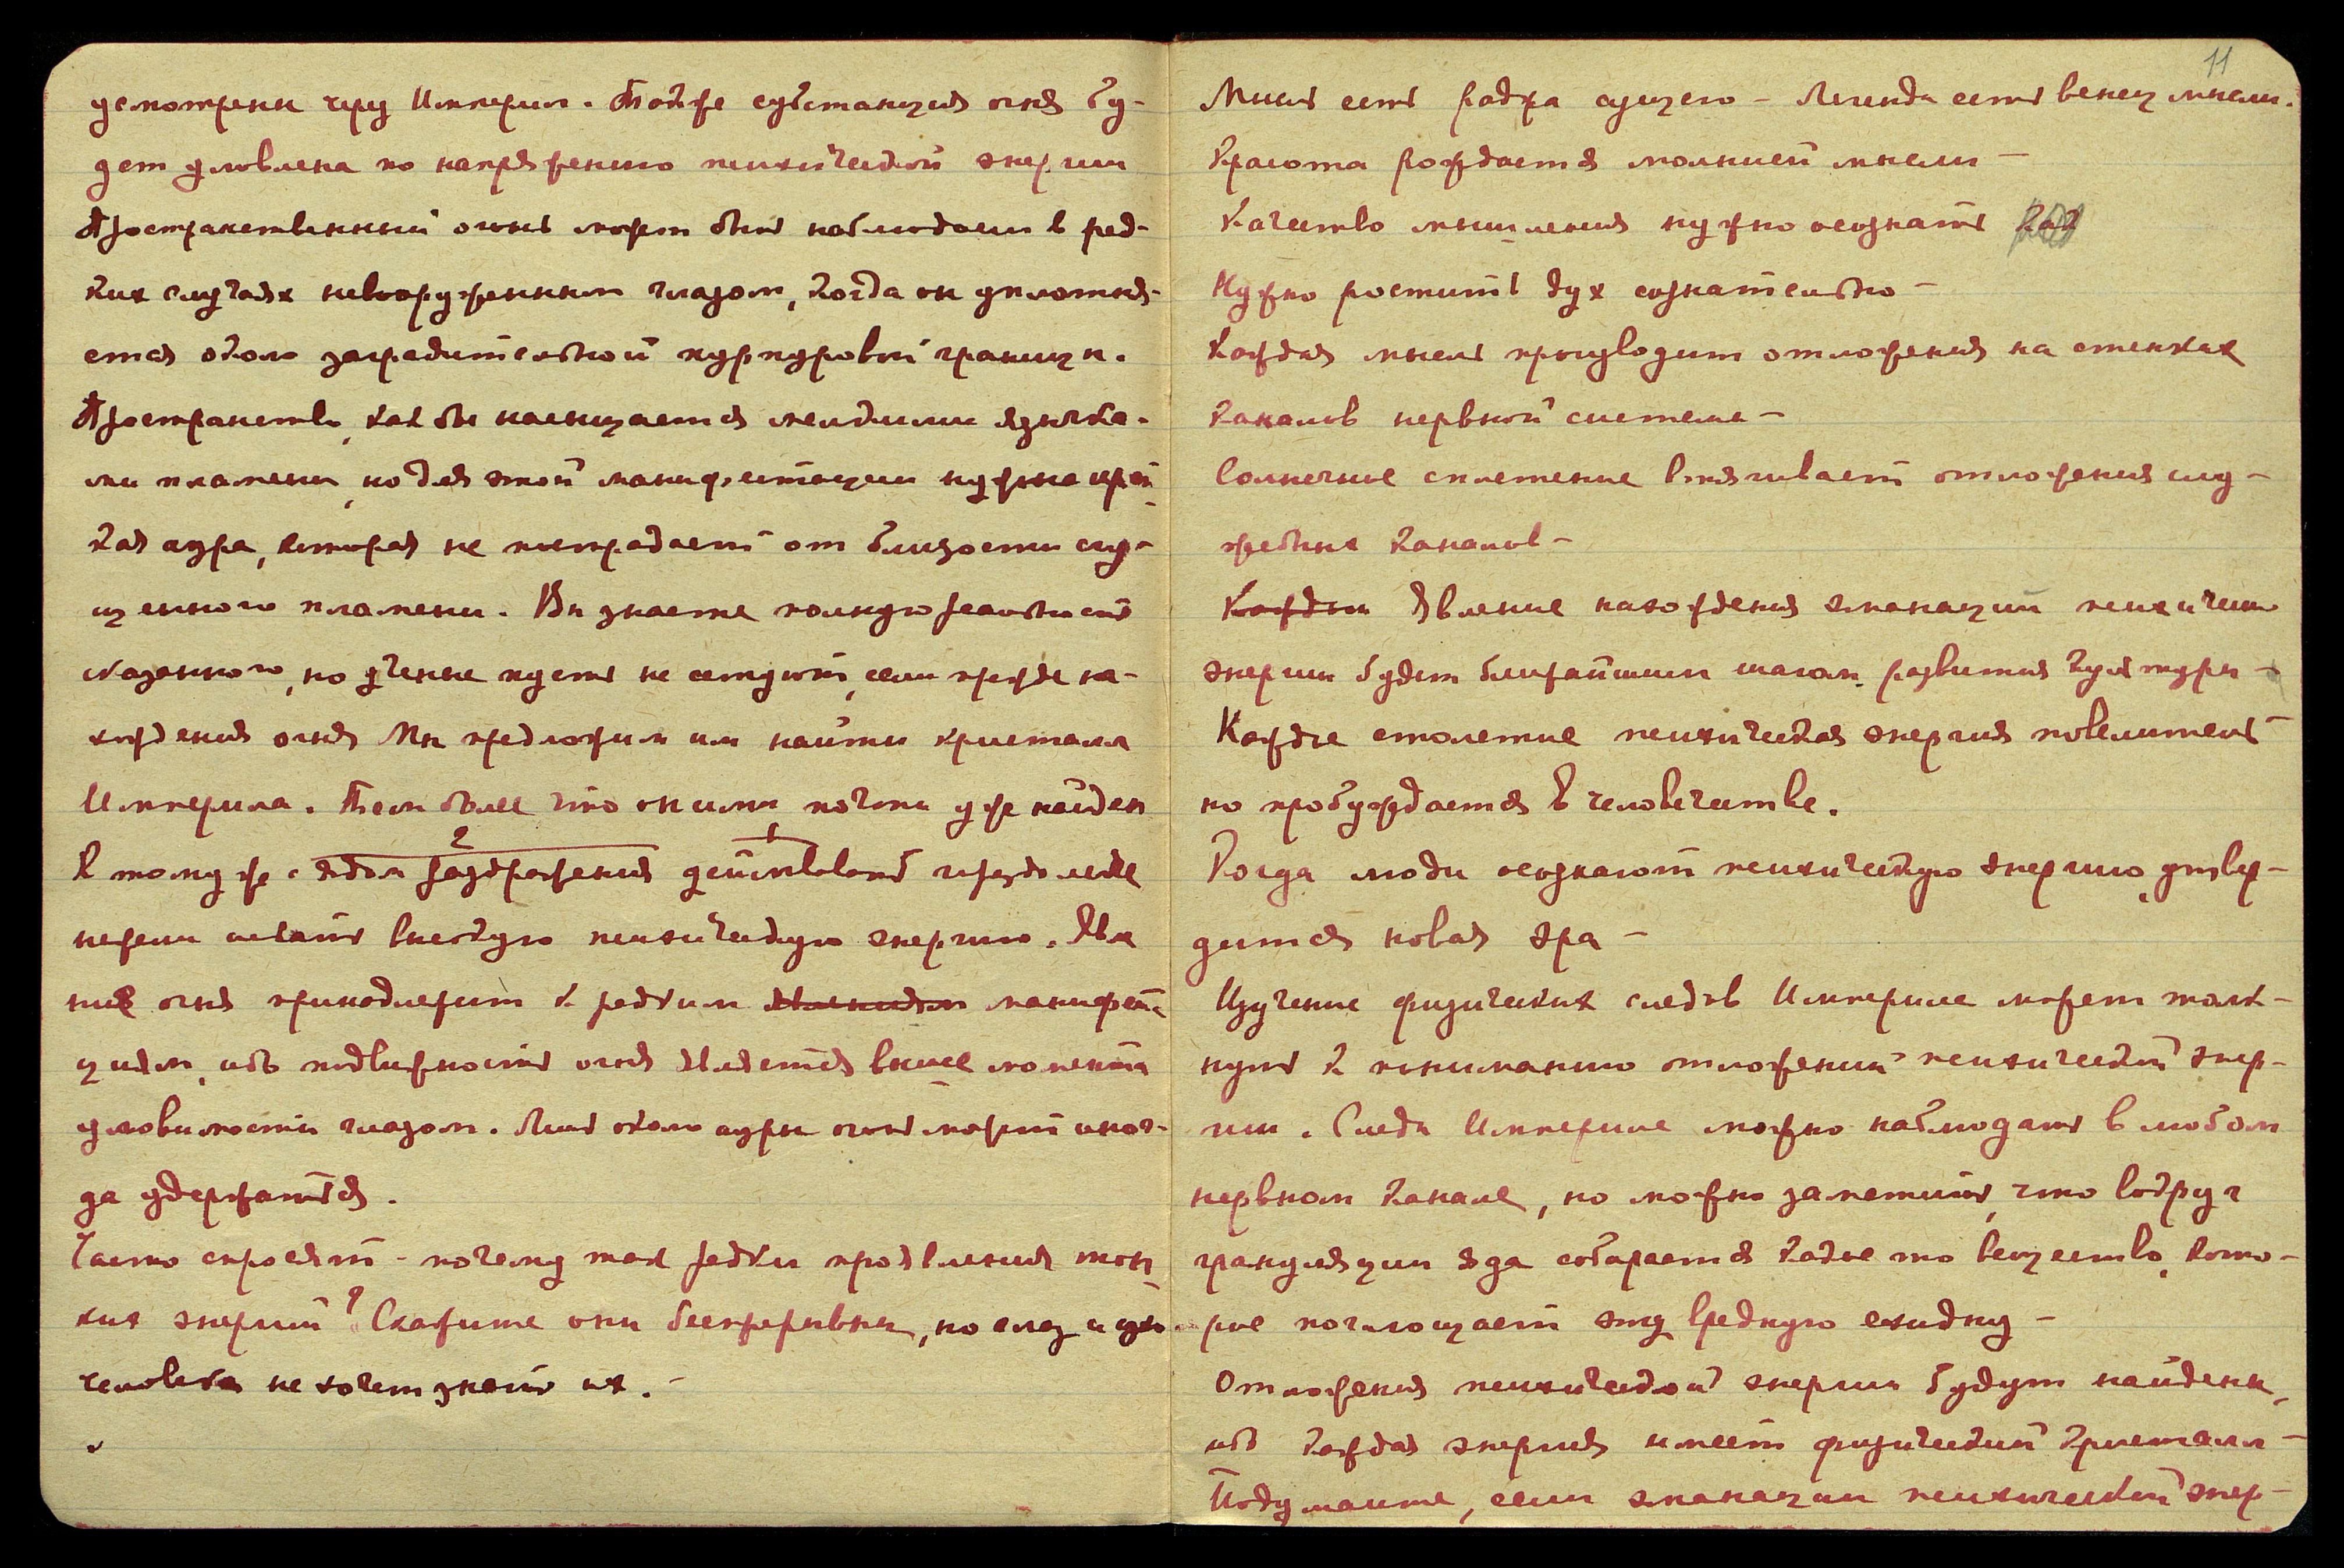 усмотрены чрез Империл. Также субстанция огня бу-
дет уловлена по напряжению психической энергии
Пространственный огонь может быть наблюдаем в ред-
ких случаях невооруженным глазом, когда он уплотня-
ется около заградительной пурпуровой границы.
Пространство, как бы насыщается мелкими язычка-
ми пламени, но для этой манифестации нужна креп-
кая аура, которая не пострадает от близости сгу-
щенного пламени. Вы знаете полную реальность
сказанного, но ученые пусть не сетуют, если прежде на-
хождения огня Мы предложим им найти кристалл
Империла. Тем более что он ими почти уже найден
К тому же с ядом раздражения действовать гораздо легче
нежели искать высокую психическую энергию. Явле
ние огня принадлежит к редким манифеста
циям, ибо подвижность огня является выше момента
уловимости глазом. Лишь около ауры огонь может иног-
да удержаться.
Часто спросят - почему так редки проявления тон-
ких энергий? Скажите они беспрерывны, но глаз и ухо
человека не хочет знать их. -
11
Мысль есть радуга сущего - Легенда есть венец мысли.
Красота рождается молнией мысли -
Качество мышления нужно осознать
Нужно ростить дух сознательно -
Каждая мысль производит отложения на стенках
каналов нервной системы -
Солнечное сплетение втягивает отложения слу-
жебных каналов -
Каждый Явление нахождения эманаций психической
энергии будет ближайшим шагом развития культуры -
Каждое столетие психическая энергия повелитель-
но пробуждается в человечестве.
Когда люди осознают психическую энергию, утвер-
дится новая эра -
Изучение физических следов Империла может толк-
нуть к пониманию отложений психической энер-
гии. Следы Империла можно наблюдать в любом
нервном канале, но можно заметить, что вокруг
грануляции яда собирается какое то вещество, кото-
рое поглощает эту вредную ехидну -
Отложения психической энергии будут найдены,
ибо каждая энергия имеет физический кристалл -
Подумайте, если эманации психической энер-